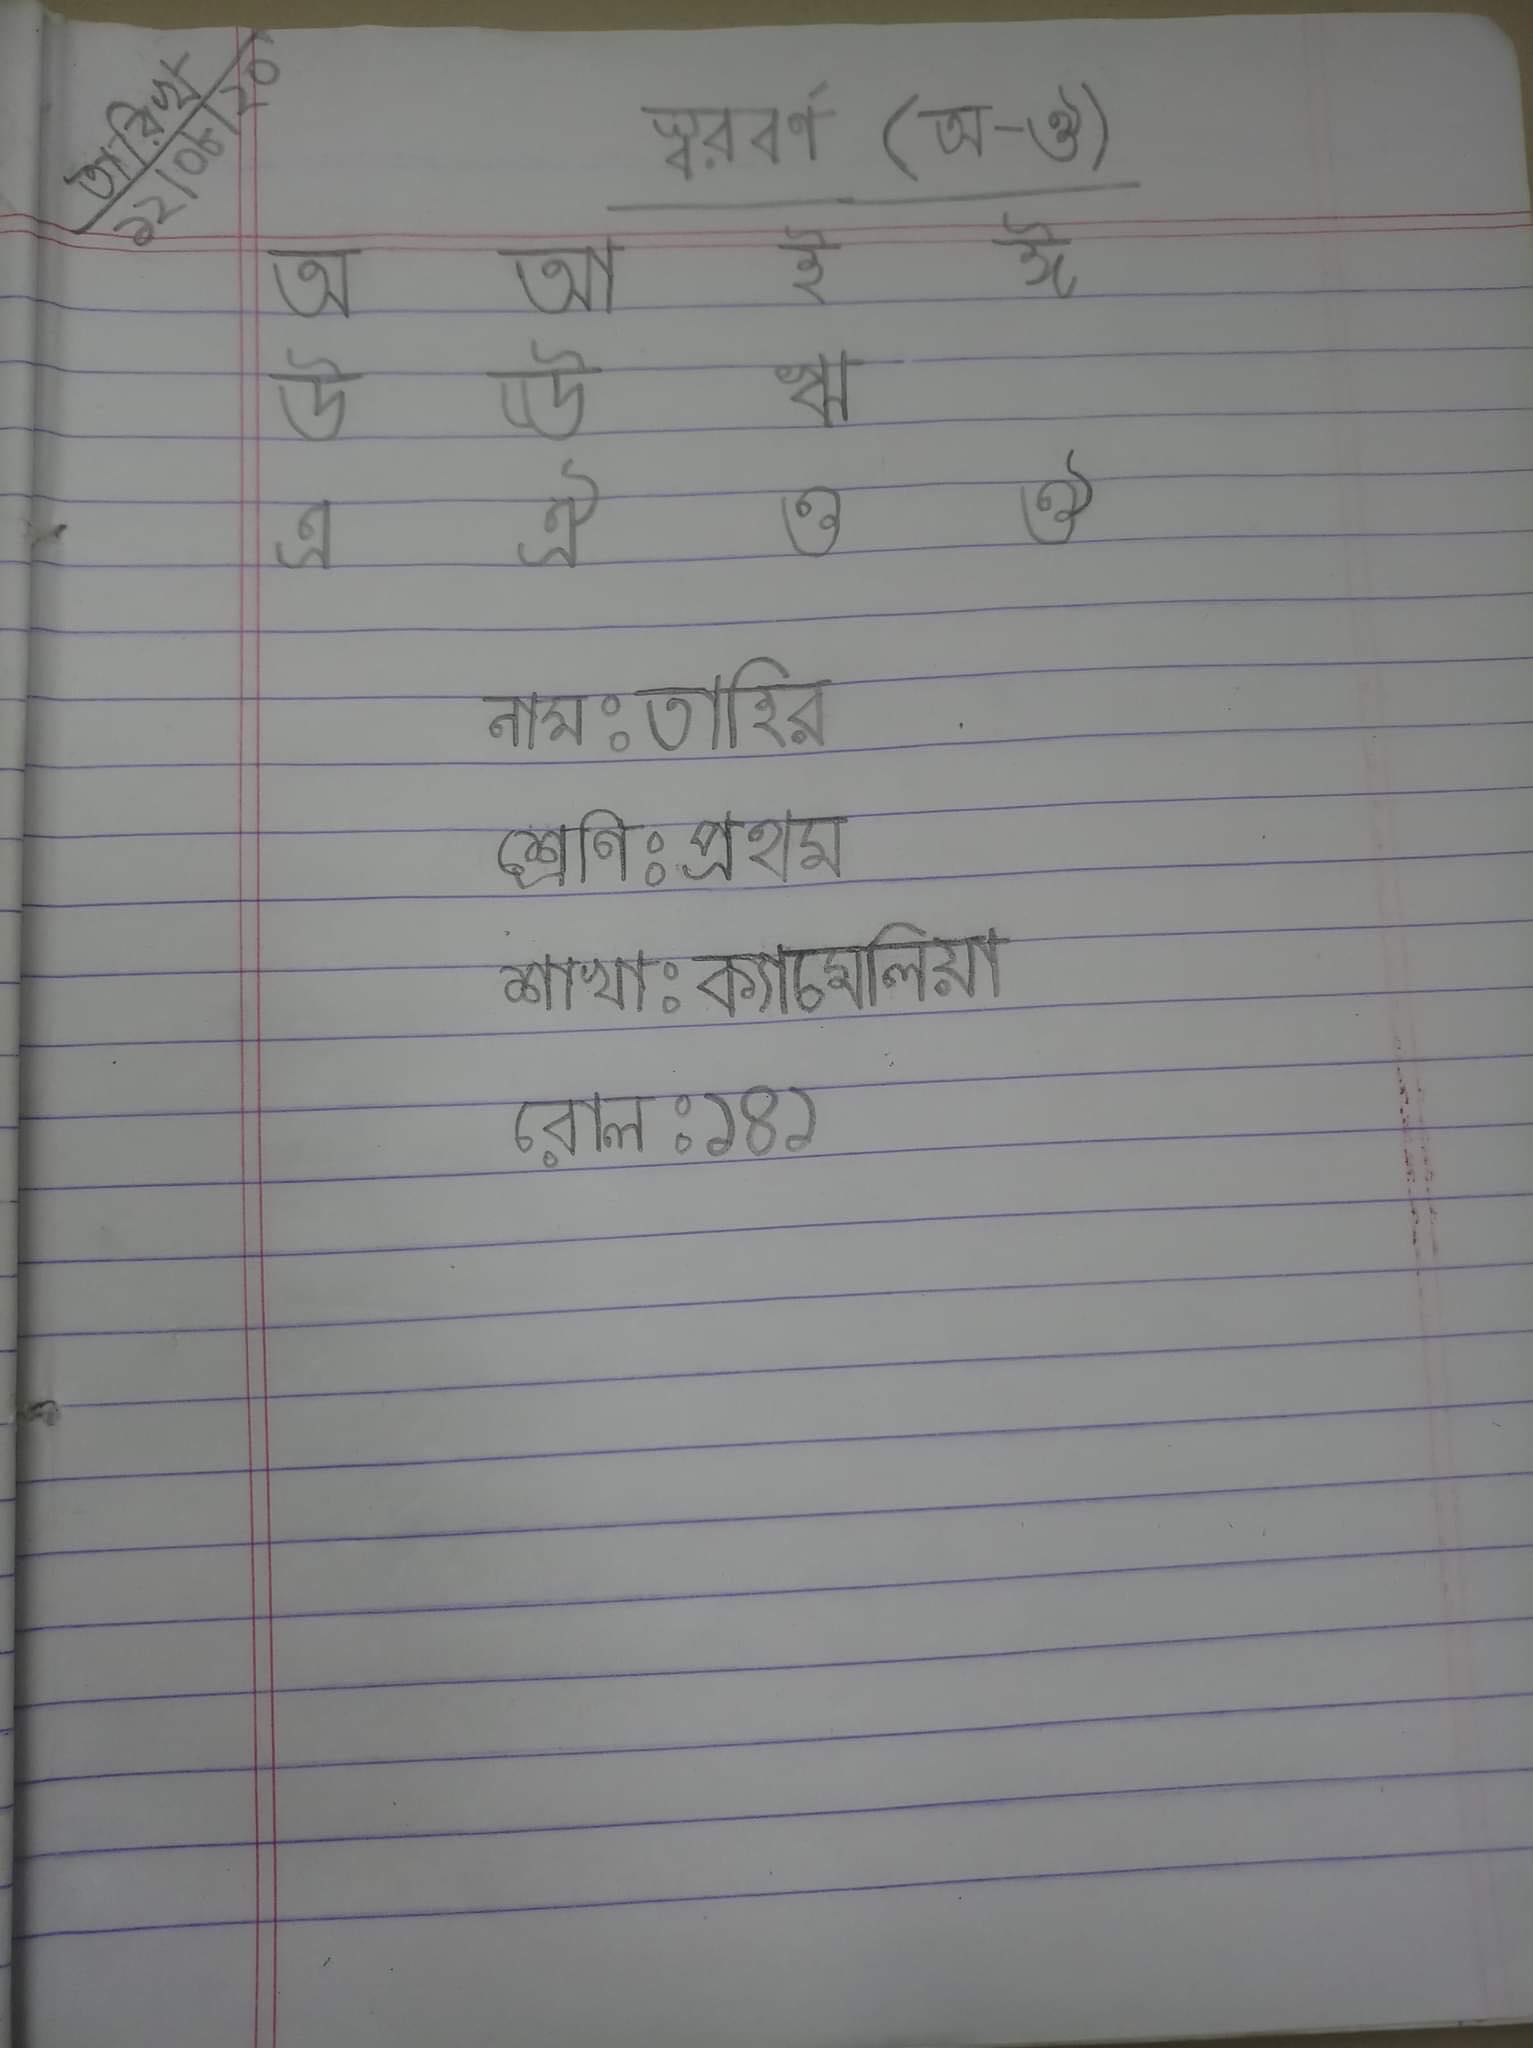 তারিখ
২২/০৮/২০
স্বরবর্ণ (অ-ঔ)
অ আ ই ঈ
উ ঊ ঋ
এ ঐ ও ঔ
নামঃ তাহির
শ্রেণিঃ প্রথম
শাখাঃ ক্যামেলিয়া
রোলঃ ১৪১